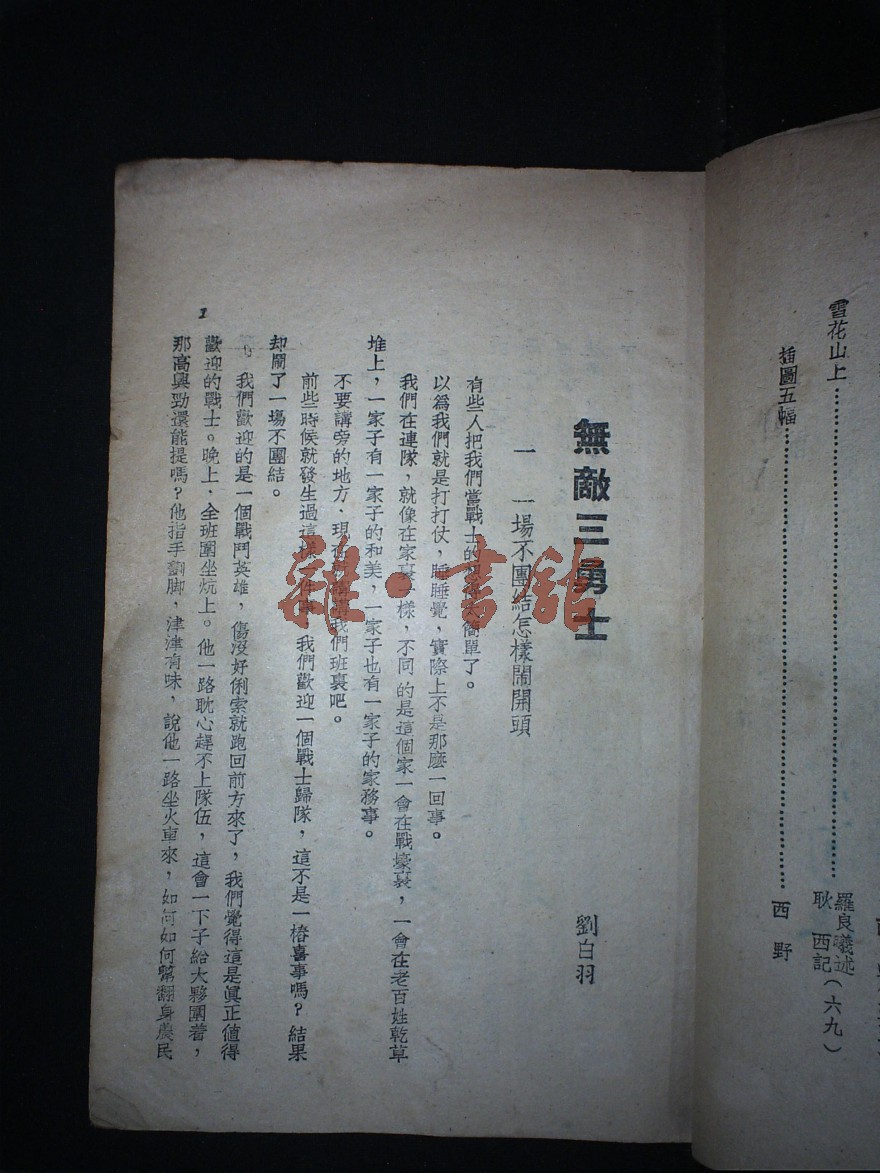 雪花山上……………………羅良羲述
耿　西記(六九)
插圖五幅……………………西　野
無敵三勇士
劉白羽
一　一場不團結怎樣鬧開頭
有些人把我們當戰士的想得太簡單了。
以爲我們就是打打仗,睡睡覺,實際上不是那麼一回事。
我們在連隊,就像在家裏一樣,不同的是這個家一會在戰壕裏,一會在老百姓乾草
堆上,一家子有一家子的和美,一家子也有一家子的家務事。
不要講旁的地方,現在就講講我們班裏吧。
前些時候就發生過這樣一件事,我們歡迎一個戰士歸隊,這不是一樁喜事嗎?結果
却鬧了一塲不團結。
我們歡迎的是一個戰鬥英雄,傷沒好俐索就跑回前方來了,我們覺得這是眞正值得
歡迎的戰士。晚上,全班圍坐炕上。他一路耽心趕不上隊伍,這會一下子給大夥圍着,
那高興勁還能提嗎?他指手劃脚,津津有味,說他一路坐火車來,如何如何幫翻身農民
1
雜·書館